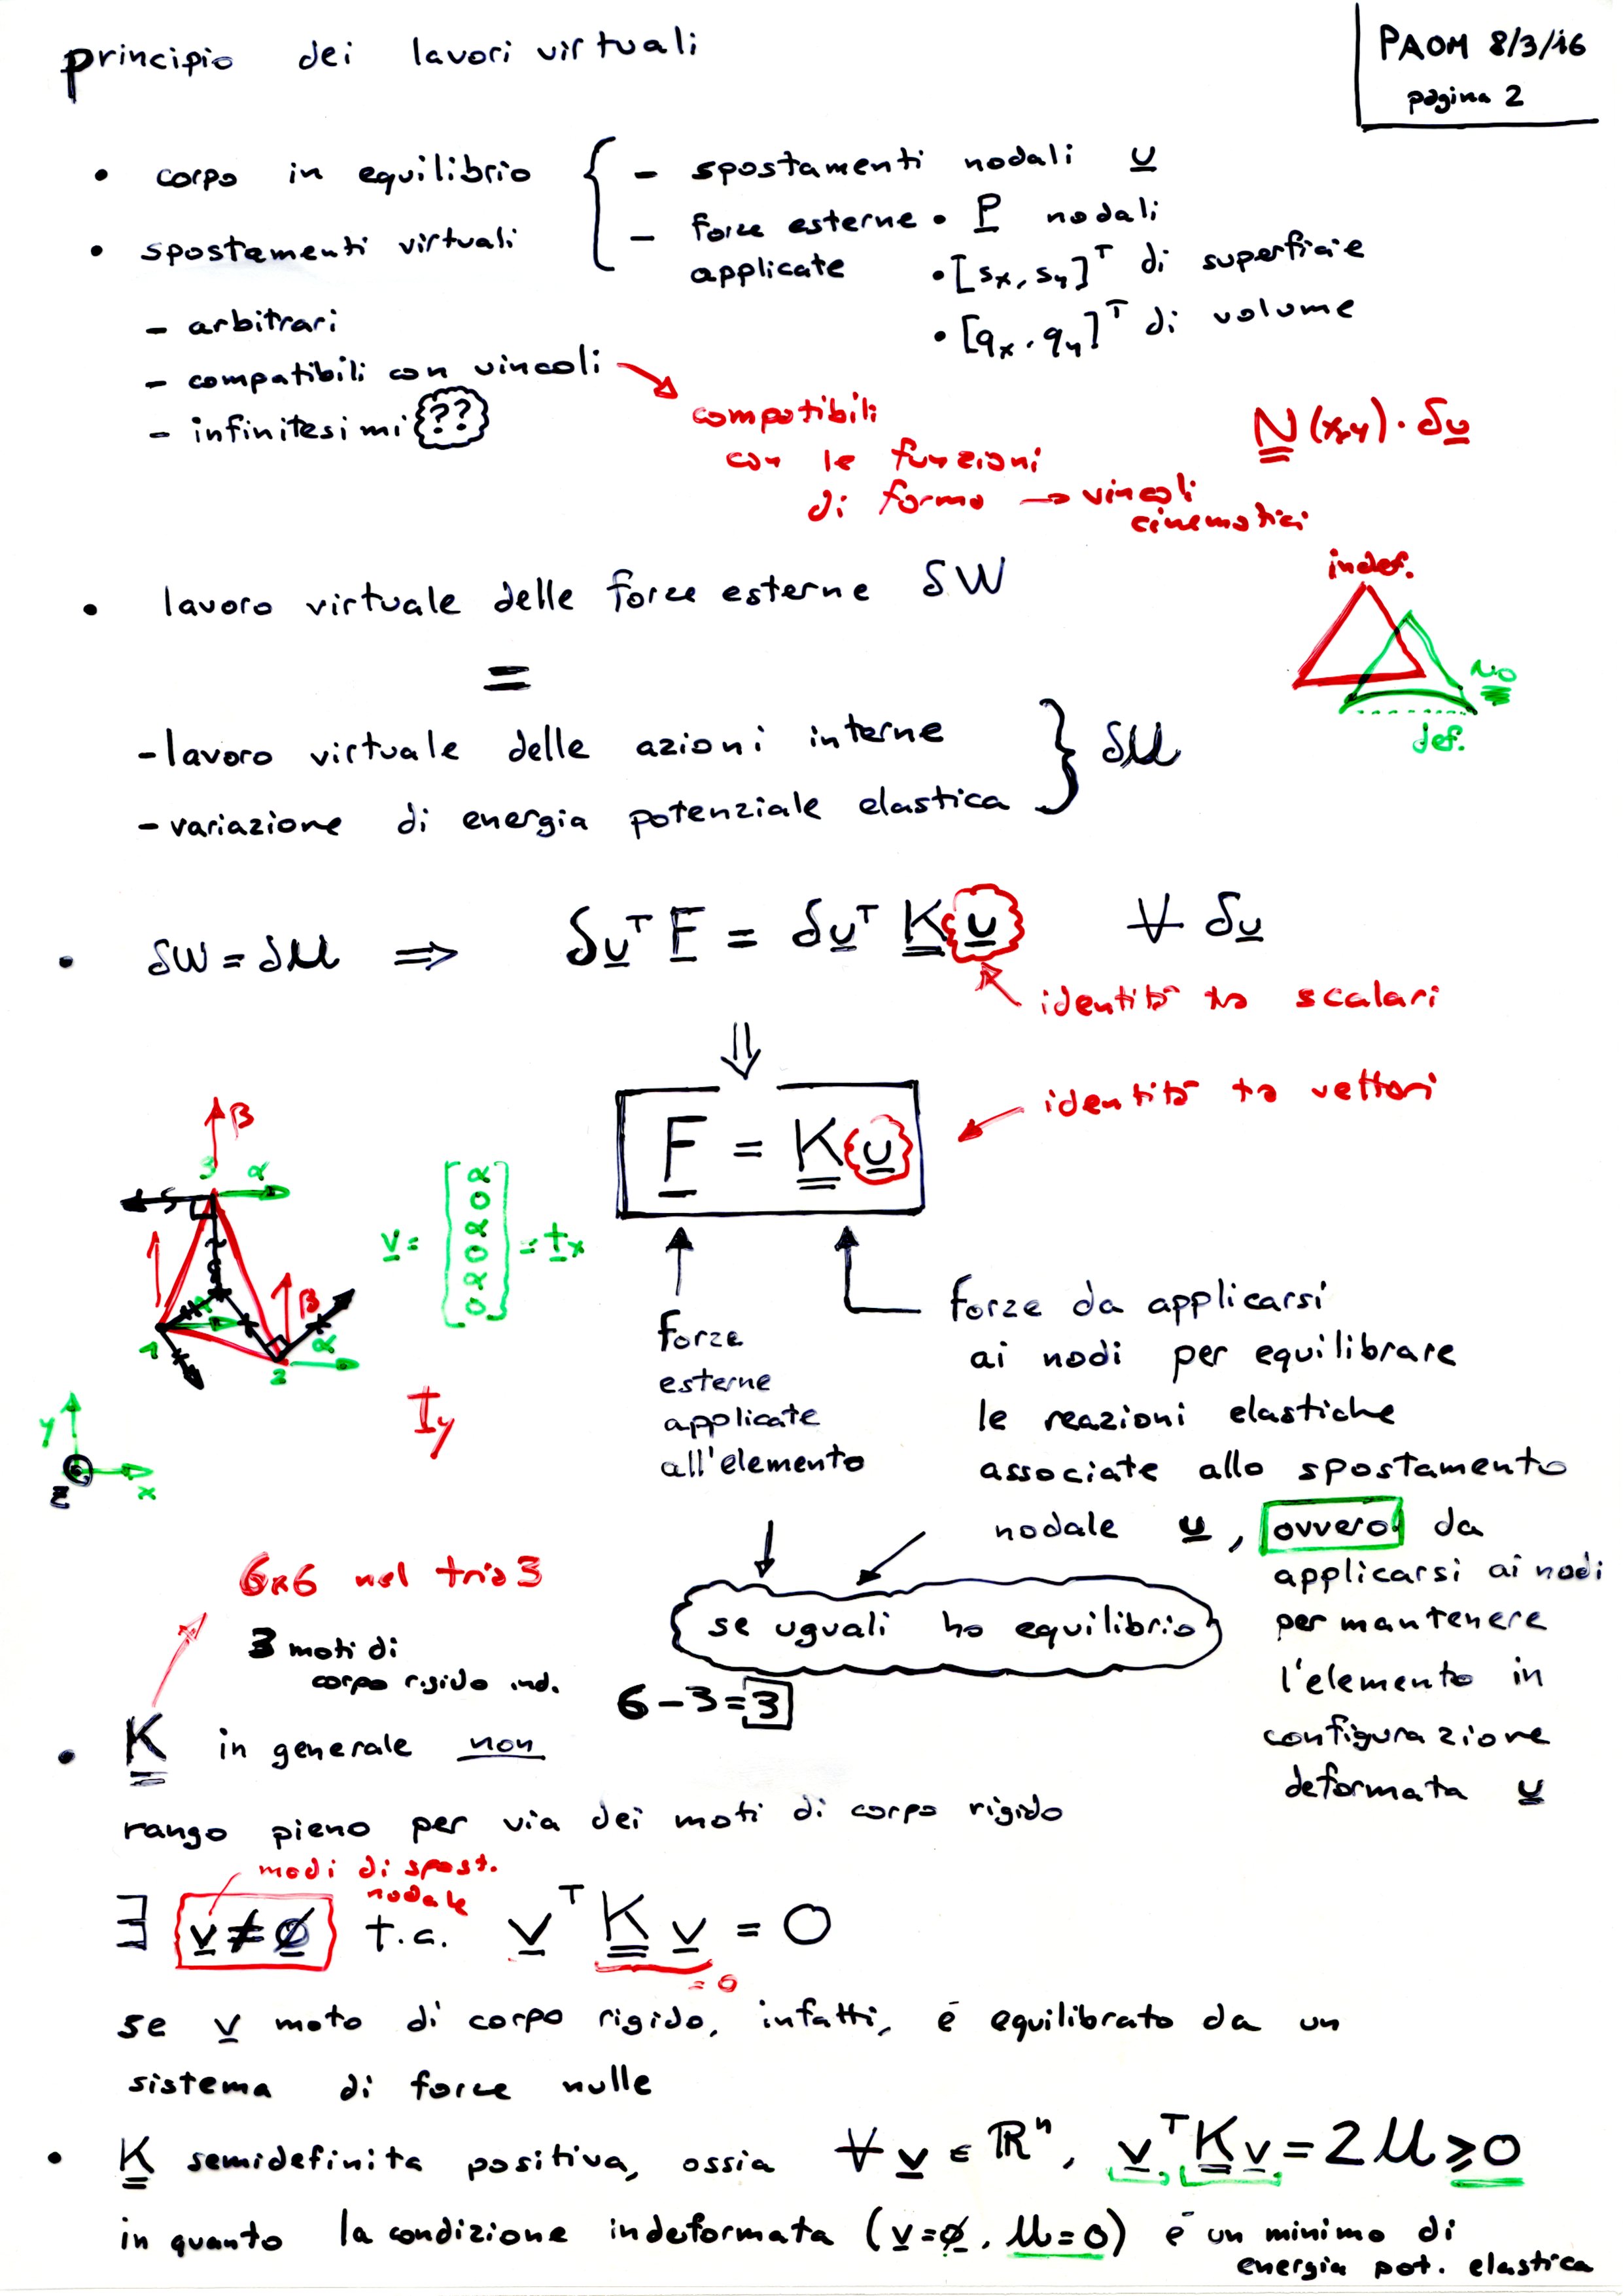 principio dei lavori virtuali
PAOM 8/3/16
pagina 2
• corpo in equilibrio
• spostamenti virtuali
- arbitrari
- compatibili con vincoli
- infinitesimi ??
- spostamenti nodali u
- forze esterne applicate
• P nodali
• [sx, sy]ᵀ di superficie
• [qx, qy]ᵀ di volume
compatibili
con le funzioni
di forma → vincoli
cinematici
N(x,y)·δu
indef.
NO
def.
• lavoro virtuale delle forze esterne δW
=
- lavoro virtuale delle azioni interne
- variazione di energia potenziale elastica
} δU
• δW = δU ⇒ δuᵀ F = δuᵀ K u ∀ δu
identità tra scalari
⇓
F = K u
identità tra vettori
β
3 α
β
α
1
2
y
z x
v = [α 0 α 0 α 0] = tx
Iy
forze
esterne
applicate
all'elemento
forze da applicarsi
ai nodi per equilibrare
le reazioni elastiche
associate allo spostamento
nodale u, ovvero da
applicarsi ai nodi
per mantenere
l'elemento in
configurazione
deformata u
se uguali ho equilibrio
6x6 nel tria3
3 moti di
corpo rigido ind.
6-3=3
• K in generale non
rango pieno per via dei moti di corpo rigido
modi di spost.
nodale
∃ v≠∅ t.c. vᵀ K v = 0
= 0
se v moto di corpo rigido, infatti, è equilibrato da un
sistema di forze nulle
• K semidefinita positiva, ossia ∀ v ∈ ℝⁿ, vᵀ K v = 2U ≥ 0
in quanto la condizione indeformata (v=∅, U=0) è un minimo di
energia pot. elastica